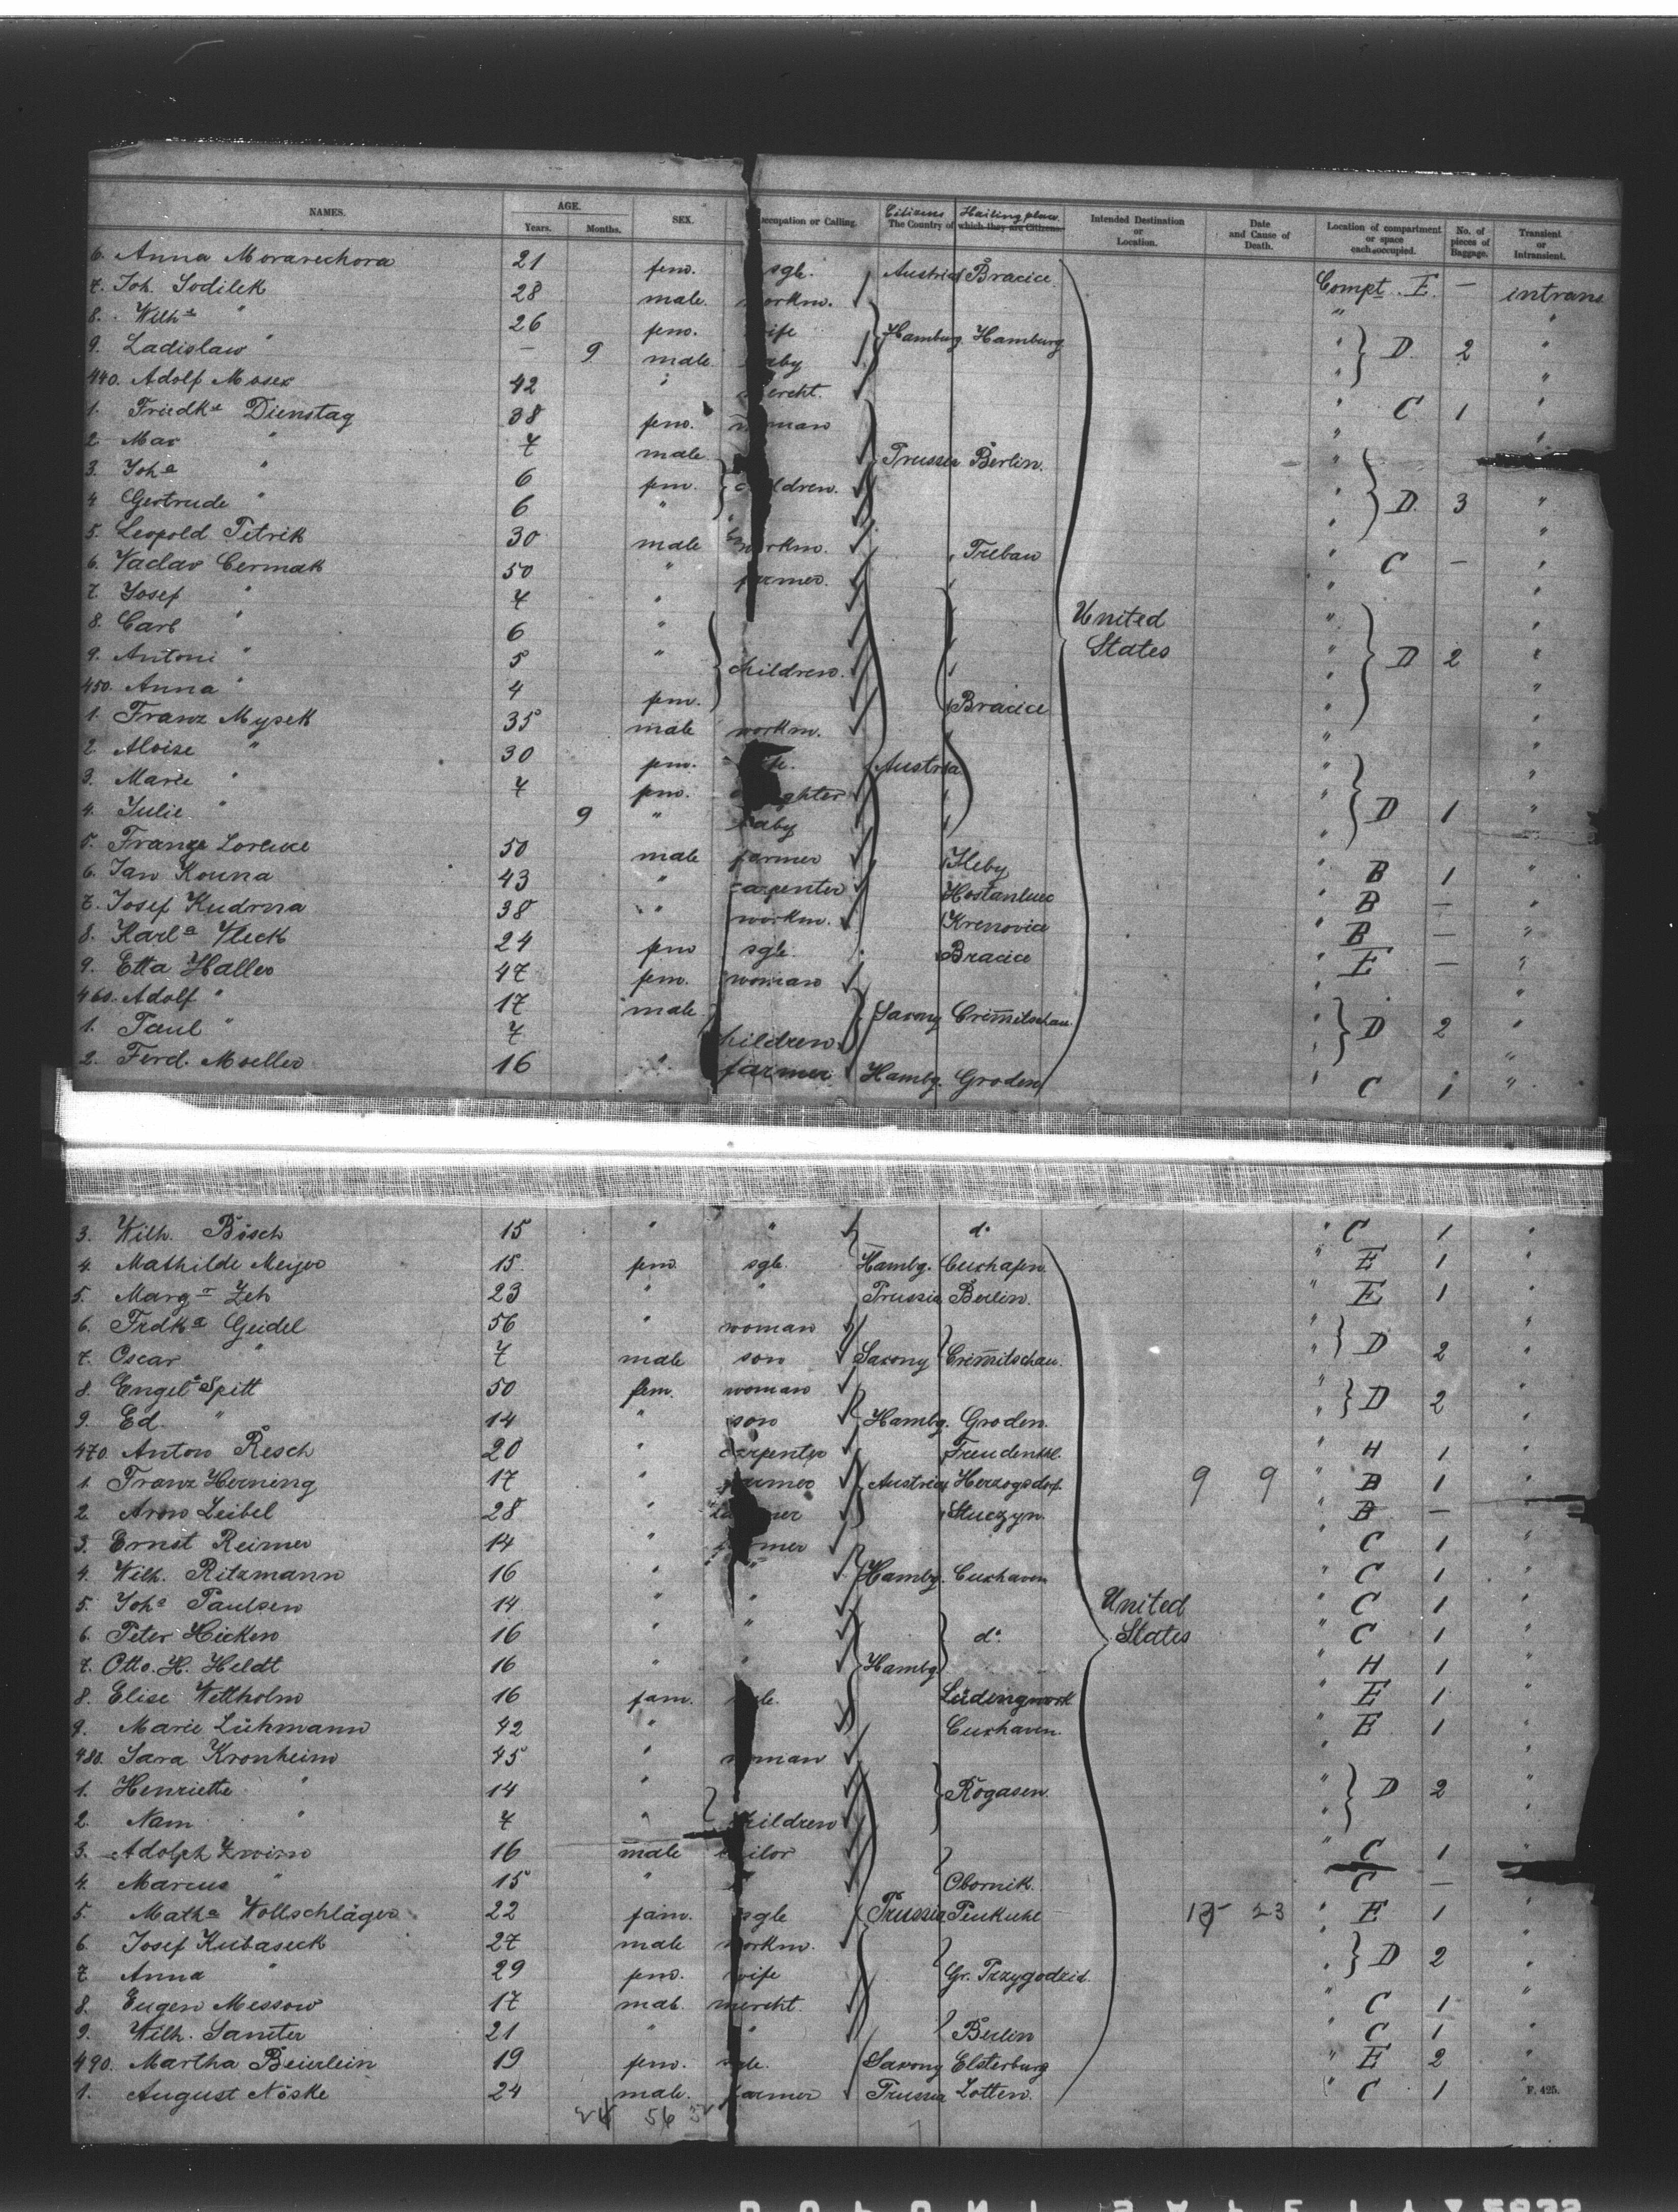 NAMES. AGE. Years. Months. SEX. ccupation or Calling. Citizens The Country of Hailing place which they are Citizens. Intended Destination or Location. Date and Cause of Death. Location of compartment or space each occupied. No. of pieces of Baggage. Transient or Intransient.
6. Anna Moravechova 21 fem. sgle. Austria Bracice Compt. E. — intrans
7. Joh. Sodilek 28 male. workm. "
8. Wilhe " 26 fem. wife Hamburg. Hamburg " D. 2 "
9. Ladislaw " — 9 male baby " "
440. Adolf Moser 42 " mercht. " C 1 "
1. Friedke Dienstag 38 fem. woman " "
2. Max " 7 male Prussia Berlin. "
3. Joha " 6 fem. children. " D. 3 "
4 Gertrude " 6 " " "
5. Leopold Petrik 30 male workm. Trebau " C — "
6. Vaclav Cermak 50 " farmer. " "
7. Josef " 7 " United " "
8. Carl " 6 " States " D 2 "
9. Antoni " 5 " children. " "
450. Anna " 4 fem. Bracice " "
1. Franz Mysek 35 male workm. " "
2. Aloise " 30 fem. wife. Austria " "
3. Marie " 7 fem. daughter " D 1 "
4. Julie " 9 " baby "
5. Franz Lorenc 50 male farmer Kleby " B 1 "
6. Jan Kouna 43 " carpenter " B — "
7. Josef Kudrna 38 " workm. Krenovice " B — "
8. Karla Vleck 24 fem sgle. Bracice " E — "
9. Etta Haller 47 fem. woman " "
460. Adolf " 17 male Saxony Crimitschau. " D 2 "
1. Paul " 7 children. " "
2. Ferd. Moeller 16 " farmer Hambg. Groden " C 1 "
3. Wilh. Bösch 15 " " do " C 1 "
4. Mathilde Meyer 15. fem. sgle. Hambg. Cuxhafen. " E 1 "
5. Marg. Zeh 23 " " Prussia Berlin. " E 1 "
6. Frdka Geidel 56 " woman " D 2 "
7. Oscar " 7 male son Saxony Crimitschau. " "
8. Engele Spitt 50 fem. woman " D 2 "
9. Ed. " 14 " son Hambg. Groden. " "
470. Anton Resch 20 " carpenter Freudenthl. " H 1 "
1. Franz Herning 17 " farmer Austria Herzogsdorf. 9 9 " B 1 "
2. Aron Leibel 28 " Stuczyn " B — "
3. Ernst Reimer 14 " farmer " C 1 "
4. Wilh. Ritzmann 16 " " Hambg. Cuxhaven " C 1 "
5. Joha Paulsen 14 " " United " C 1 "
6. Peter Hicken 16 " " do States " C 1 "
7. Otto. H. Heldt 16 " " Hambg " H 1 "
8. Elise Wettholm 16 fam. sgle. Lüdingwork " E 1 "
9. Marie Lühmann 42 " Cuxhaven. " E 1 "
480. Sara Kronheim 45 " woman " "
1. Henriette " 14 " Rogasen. " D 2 "
2. Nam " 7 " children " "
3. Adolph Zwirn 16 male tailor " C 1 "
4. Marcus " 15 " " Obornik. C — "
5. Matha Wollschläger 22 fam. sgle Prussia Penkuhl 23 " E 1 "
6. Josef Kubaseck 27 male workm. " D 2 "
7. Anna " 29 fem. wife Gr. Przygodzid. " "
8. Eugen Messow 17 mal. mercht. " C 1 "
9. Wilh. Samter 21 " " Berlin " C 1 "
490. Martha Beierlein 19 fem. sgle. Saxony Elsterburg " E 2 "
1. August Nöske 24 male. farmer Prussia Lotten. " C 1 "
F. 425.
56